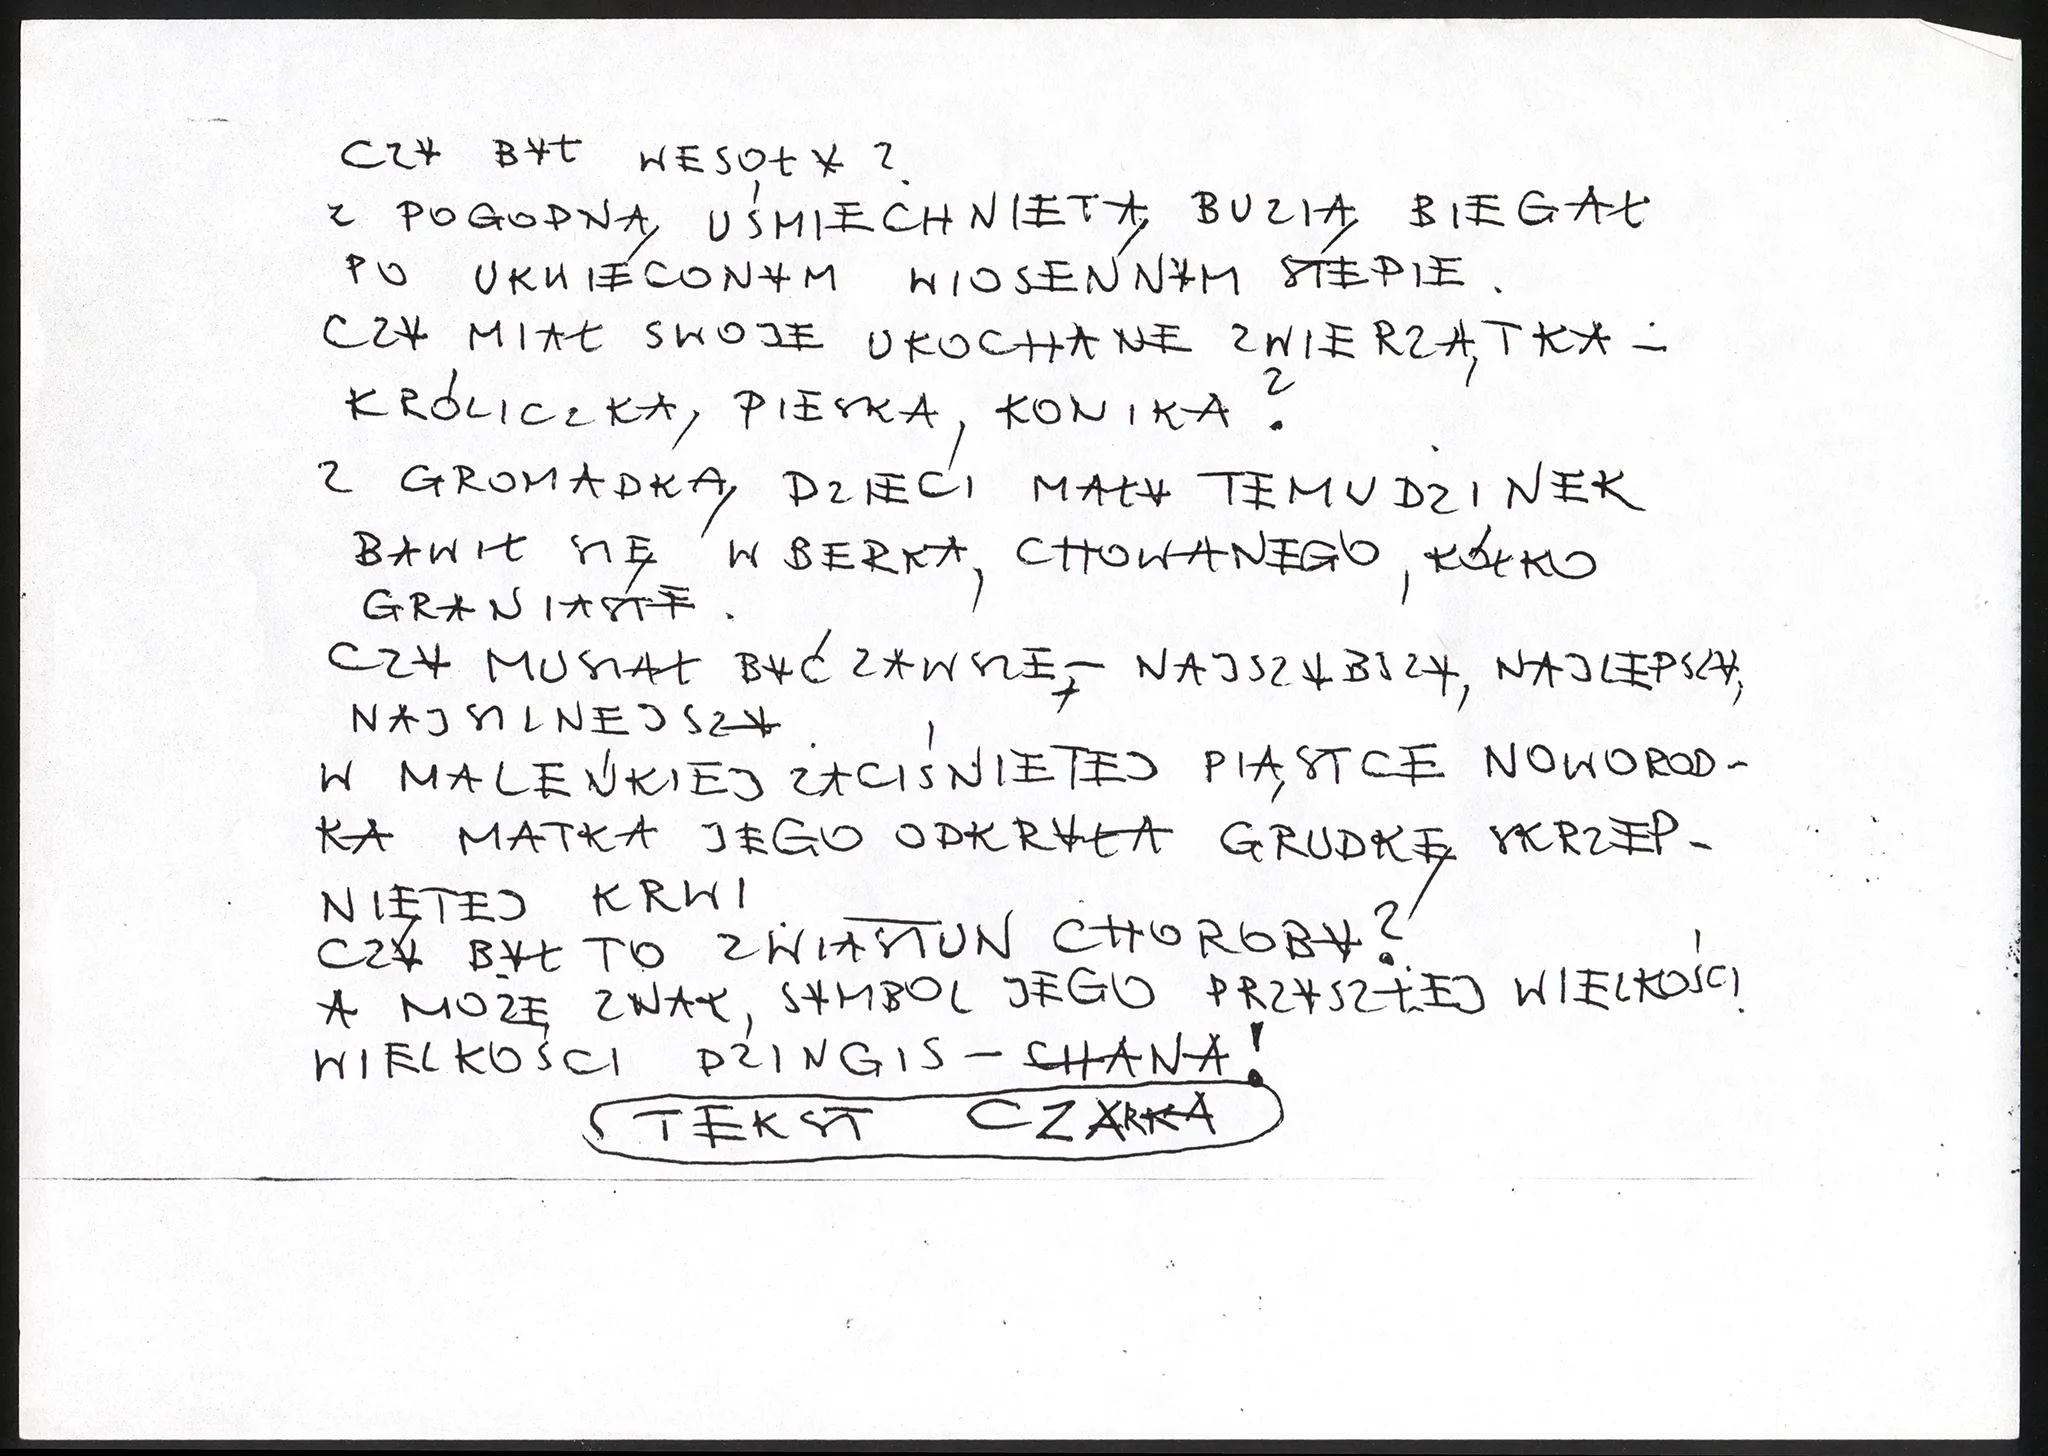 CZY BYŁ WESOŁY?
Z POGODNĄ UŚMIECHNIETĄ BUZIĄ BIEGAŁ
PO UKWIECONYM WIOSENNYM STEPIE.
CZY MIAŁ SWOJE UKOCHANE ZWIERZĄTKA –
KRÓLICZKA, PIESKA, KONIKA?
Z GROMADKĄ DZIECI MAŁY TEMUDŻINEK
BAWIŁ SIĘ W BERKA, CHOWANEGO, KÓŁKO
GRANIASTE.
CZY MUSIAŁ BYĆ ZAWSZE – NAJSZYBSZY, NAJLEPSZY,
NAJSILNEJSZY.
W MALEŃKIEJ ZACIŚNIETEJ PIĄSTCE NOWOROD-
KA MATKA JEGO ODKRYŁA GRUDKĘ SKRZEP-
NIĘTEJ KRWI
CZY BYŁ TO ZWIASTUN CHOROBY?
A MOŻE ZNAK, SYMBOL JEGO PRZYSZŁEJ WIELKOŚCI.
WIELKOŚCI DŻINGIS – CHANA!
TEKST CZARKA